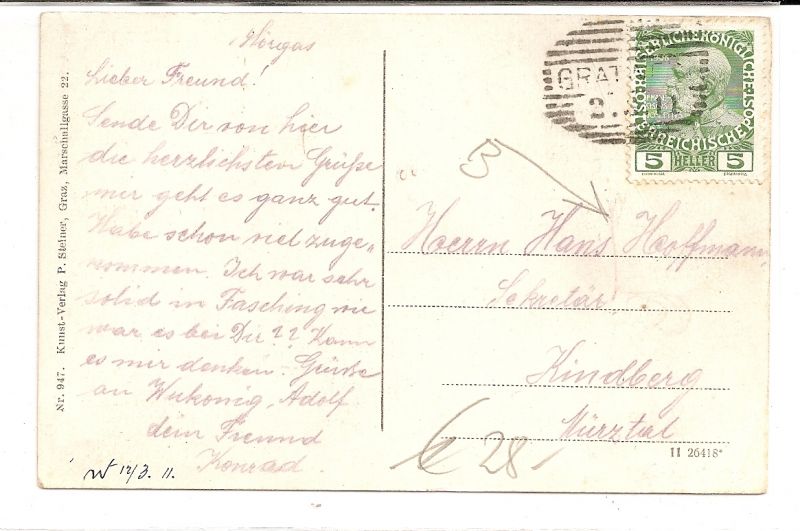 Hörgas
Lieber Freund!
Sende Dir von hier
die herzlichsten Grüße
mir geht es ganz gut.
Habe schon viel zuge„
nommen. Ich war sehr
solid in Fasching wie
war es bei Dir?? Kann
es mir denken. Grüße
an Wukonig, Adolf
dein Freund
Konrad.
12/3. 11.
Nr. 947. Kunst-Verlag P. Steiner, Graz, Marschallgasse 22.
GRAT
KAISERLICHEKÖNIGLICHE
ÖSTERREICHISCHE POST
5 HELLER 5
B
Herrn Hans Hoffmann,
Sekretär
Kindberg
Mürztal
II 26418*
28.